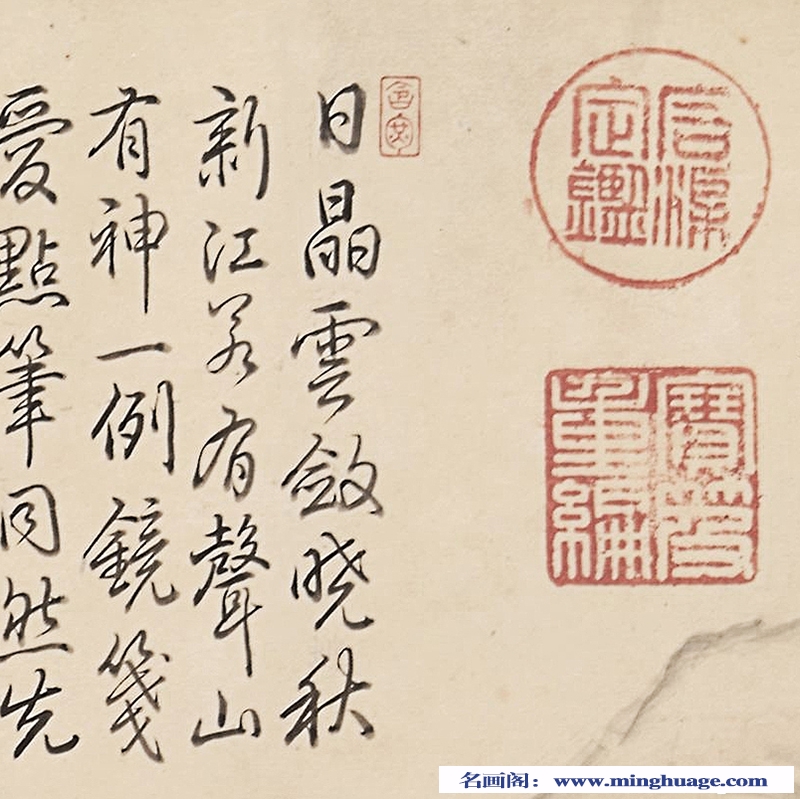 石渠
定鑑
寶笈
重編
日晶雲斂曉秋
新江若有聲山
有神一例鏡箋
愛點筆同然先
名画阁：www.minghuage.com